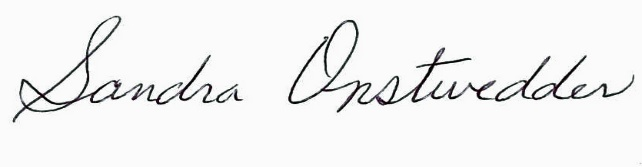 Sandra Onstwedder